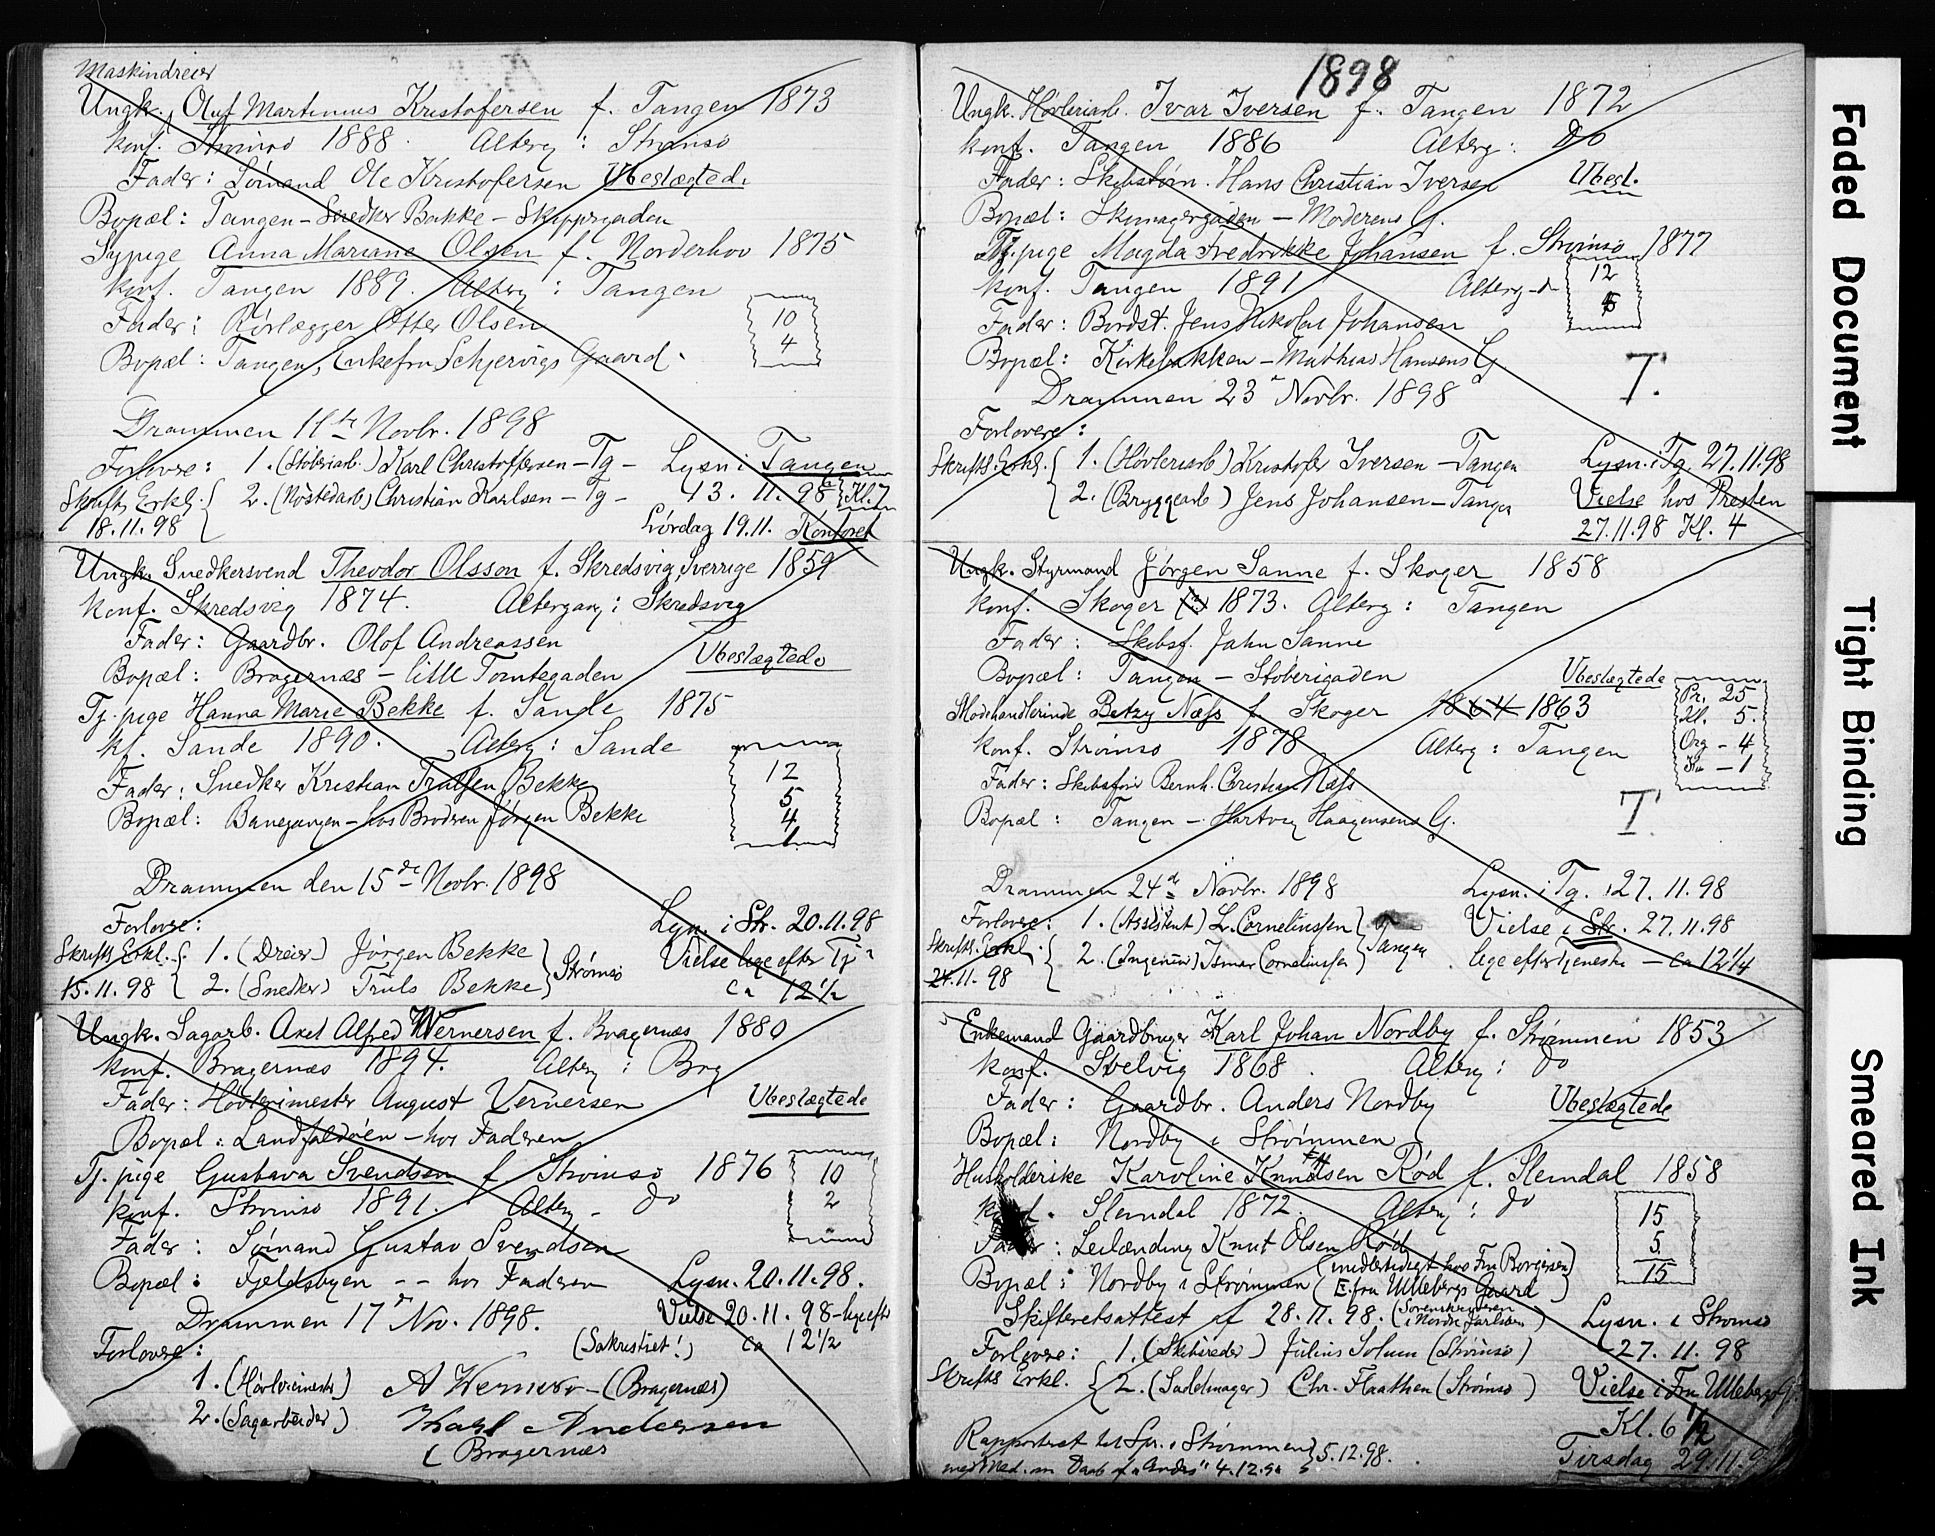 Maskindreier
Ungk. Oluf Martinius Kristofersen f. Tangen 1873
konf. Strømsø 1888 Alterg: Strømsø
Fader: Sømand Ole Kristofersen Ubeslægtede
Bopæl: Tangen - Snedker Bakke - Skippergaden
Sypige Anna Mariane Olsen f. Norderhov 1875
konf. Tangen 1889. Alterg: Tangen
Fader: Rørlægger Otter Olsen
10
4
Bopæl: Tangen, Enkefru Schjervigs Gaard.
Drammen 11te Novbr. 1898
Forlovere: 1. (Støberiarb.) Karl Christoffersen - Tg - Lysn i Tangen
Skriftl. Erkl. { 2. (Nøstedarb) Christian Karlsen - Tg - 13. 11. 98 Kl. 7
18.11.98 Lørdag 19.11. Kontoret
Ungk. Snedkersvend Theodor Olsson f. Skredsvig, Sverrige 1859
konf. Skredsvig 1874. Altergang: Skredsvig
Fader: Gaardbr. Olof Andreassen
Ubeslægtede
Bopæl: Bragernæs - lille Tomtegaden
Tj. pige Hanna Marie Bekke f. Sande 1875
kf. Sande 1890. Alterg: Sande
Fader: Snedker Kristian Trulsen Bekke
12
5
4
1
Bopæl: Banegangen - hos Broderen Jørgen Bekke
Drammen den 15de Novbr. 1898
Forlovere: Lysn. i Str. 20.11.98
Skriftl. Erkl. { 1. (Dreier) Jørgen Bekke } Strømsø Vielse lige efter Tj
15.11.98 { 2. (Snedker) Truls Bekke ca 12½
Ungk. Sagarb. Axel Alfred Wernersen f. Bragernæs 1880
konf. Bragernæs 1894. Alterg: Brag
Fader: Høvlerimester August Vernersen Ubeslægtede
Bopæl: Landfaldøen - hos Faderen
Tj. pige Gustava Svendsen f Strømsø 1876
10
2
konf. Strømsø 1891. Alterg - do
Fader: Sømand Gustav Svendsen
Bopæl: Fjeldsbyen -- hos Faderen Lysn. 20.11.98.
Drammen 17de Nov. 1898. Vielse 20.11.98 - lige efts
Forlovere: (Sakristiet!) ca 12½
1. (Høvlerimester) A Werner - (Bragernæs)
2. (Sagarbeider) Karl Andersen
( Bragernæs
1898
Ungk. Høvleriarb. Ivar Iversen f. Tangen 1872
konf. Tangen 1886 Alterg: do
Fader: Skibstøm. Hans Christian Iversen Ubesl.
Bopæl: Skomagergaden - Moderens G.
Tj. pige Magda Fredrikke Johansen f. Strømsø 1877
konf. Tangen 1891 Alterg - do
12
5
Fader: Bordst. Jens Nikolai Johansen
Bopæl: Kirkebakken - Mathias Hansens G.
T.
Drammen 23de Novbr. 1898
Forlovere:
Skriftl. Erkl. { 1. (Høvleriarb) Kristofer Iversen - Tangen Lysn. i Tg. 27.11.98
2. (Bryggearb) Jens Johansen - Tangen Vielse hos Presten
27.11.98 Kl. 4
Ungk. Styrmand Jørgen Sanne f. Skoger 1858
konf. Skoger 1873. Alterg: Tangen
Fader: Skibsf. Jahn Sanne
Bopæl: Tangen - Støberigaden Ubeslægtede
Modehandlerinde Betzy Næss f Skoger 1864 1863
Pr. 25
Kl. 5.
Org - 4
- 1
konf. Strømsø 1878 Alterg: Tangen
Fader: Skibsfører Bernh. Christian Næss
Bopæl: Tangen - Hartvig Haagensens G.
T.
Drammen 24de Novbr. 1898 Lysn. i Tg. 27.11.98
Forlovere: 1. (Assistent) L. Corneliussen } Tangen Vielse i Str. 27.11.98
Skriftl. Erkl. { 2. (Ingeniør) Ismar Corneliussen lige efter Tjeneste - ca 12¼
24.11.98
Enkemand Gaardbruger Karl Johan Nordby f. Strømmen 1853
konf. Svelvig 1868. Alterg: do
Fader: Gaardbr. Anders Nordby Ubeslægtede
Bopæl: Nordby i Strømmen
Husholderske Karoline Knudsen Rød f. Slemdal 1858
konf. Slemdal 1872. Alterg: do
15
5
15
Fader: Leilænding Knut Olsen Rød
Bopæl: Nordby i Strømmen (midlertidigt hos Fru Borgersen)
(E.fru Ullebergs Gaard
Skifteretsattest af 28.11.98. (Sorenskriveren i Nordre Jarlsberg) Lysn. i Strømsø
Forlovere: 1. (Skibsreder) Julius Solum (Strømsø) 27. 11. 98
Skriftl. Erkl. { 2. (Sadelmager) Chr. Flaathen (Strømsø) Vielse i Fru Ullebergs G.
Kl. 6½
Tirsdag 29.11.
Rapporteret til Spr. i Strømmen } 5.12.98.
med Med. om Daab af "Andrs" 4.12.98
Faded Document
Tight Binding
Smeared Ink